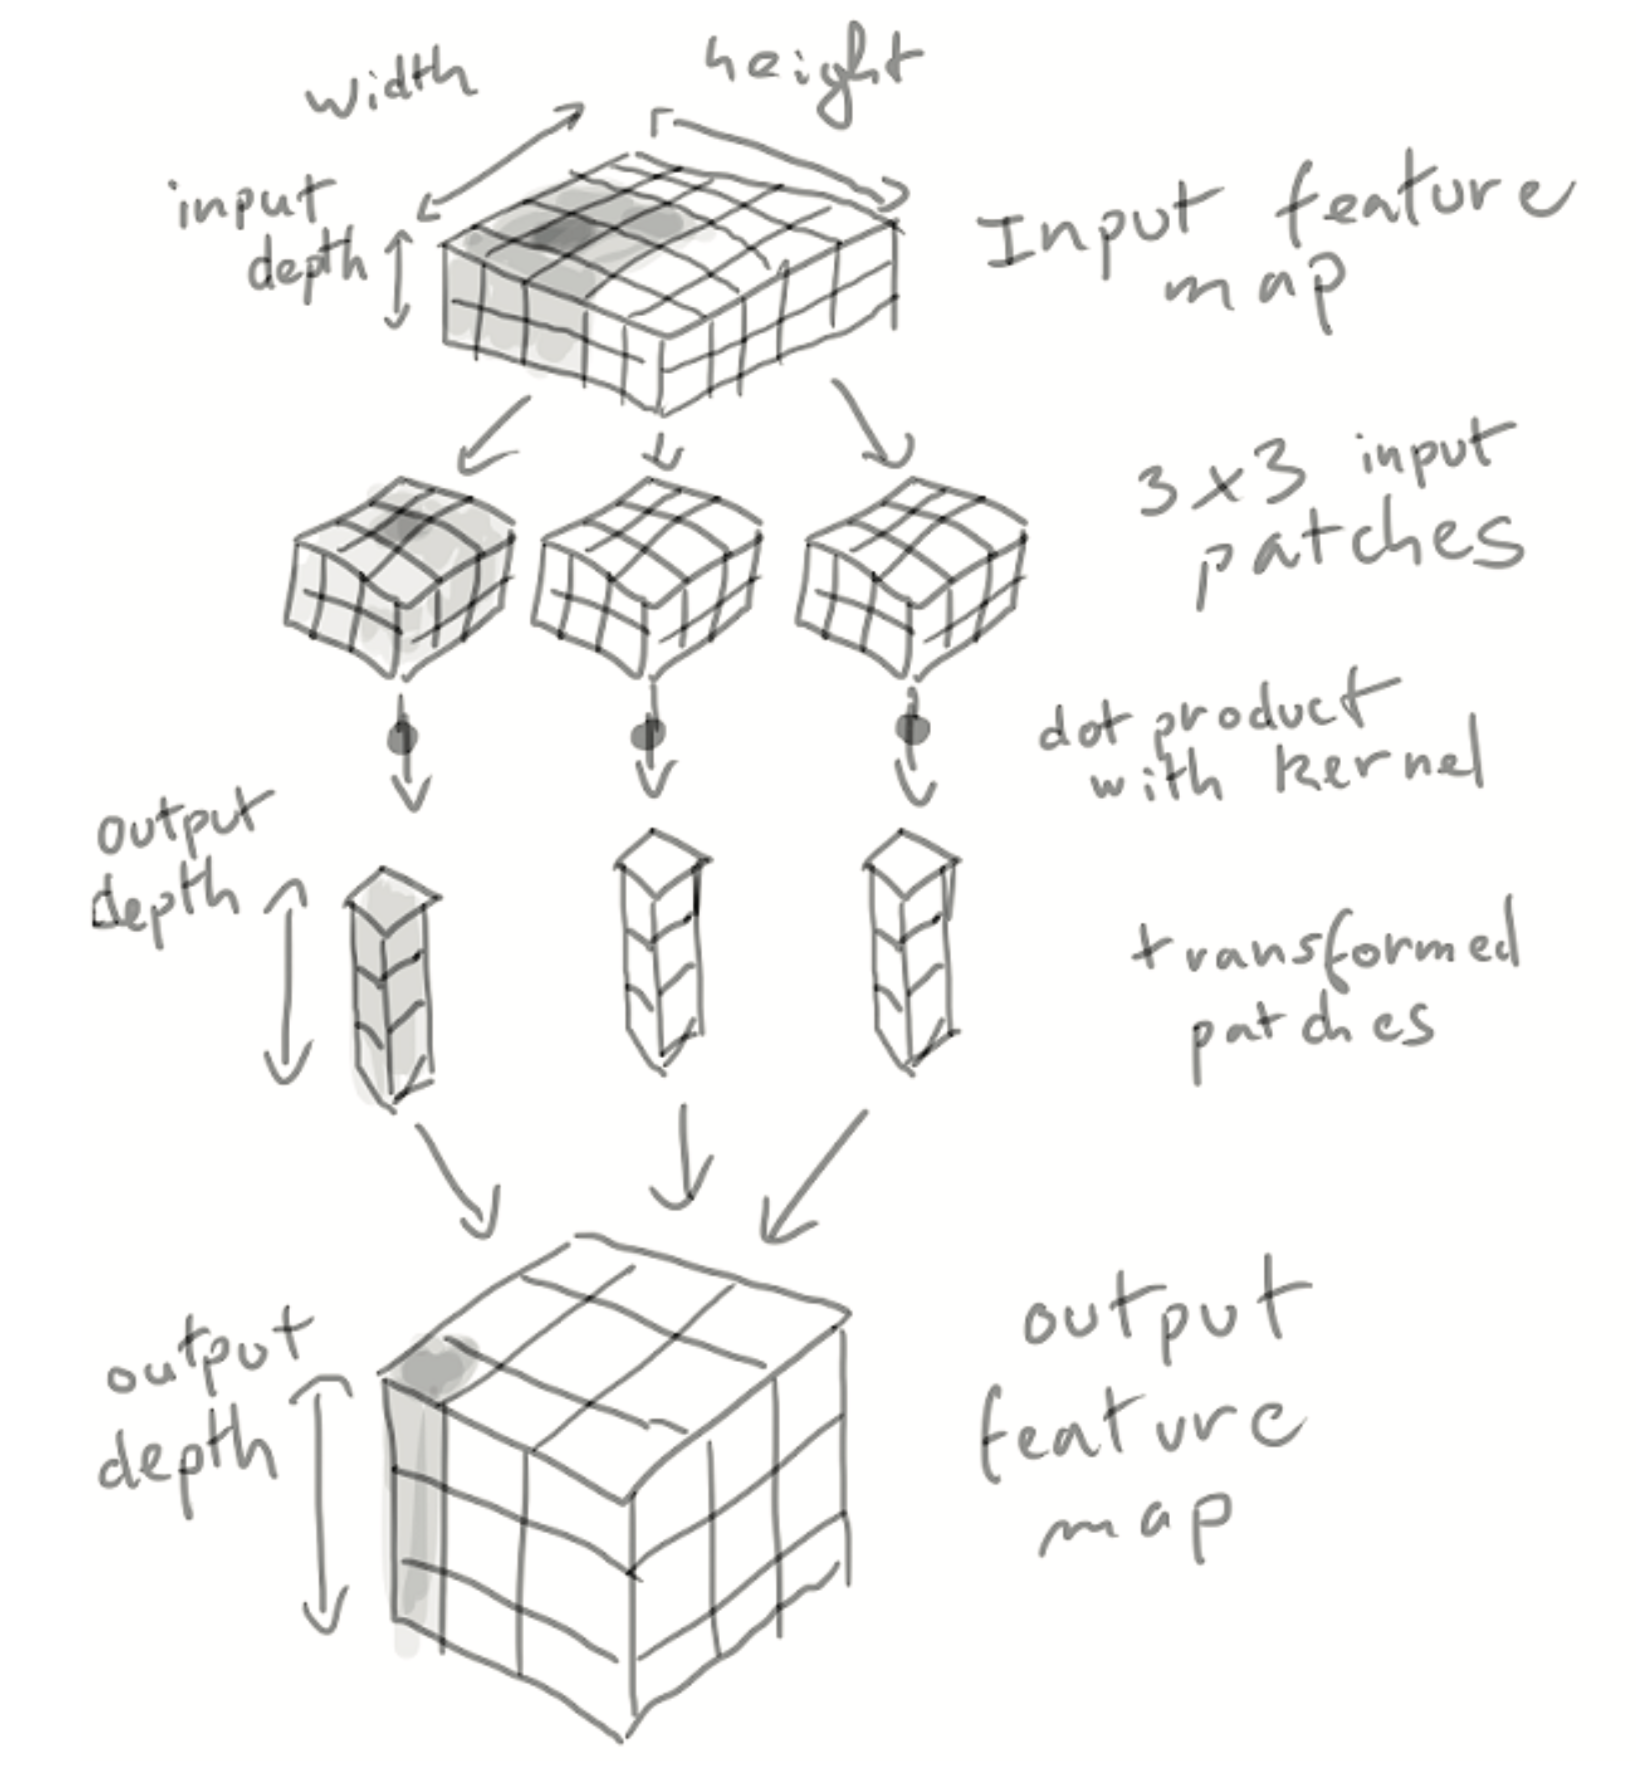 width
height
input
depth
Input feature
map
3x3 input
patches
dot product
with kernel
output
depth
transformed
patches
output
depth
output
feature
map